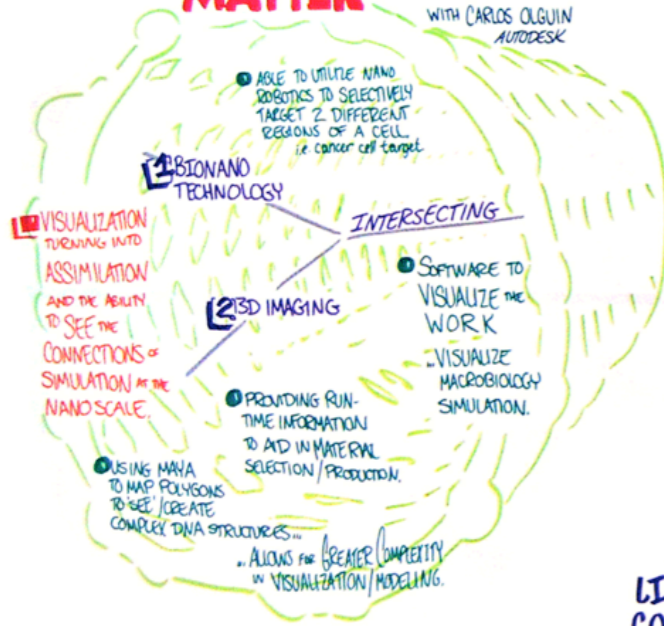 MATTER
WITH CARLOS OLGUIN
AUTODESK
ABLE TO UTILIZE NANO
ROBOTICS TO SELECTIVELY
TARGET 2 DIFFERENT
REGIONS OF A CELL
i.e. cancer cell target
1 BIONANO
TECHNOLOGY
INTERSECTING
VISUALIZATION
TURNING INTO
ASSIMILATION
AND THE ABILITY
TO SEE THE
CONNECTIONS OF
SIMULATION AT THE
NANO SCALE.
2 3D IMAGING
SOFTWARE TO
VISUALIZE THE
WORK
...VISUALIZE
MACROBIOLOGY
SIMULATION.
PROVIDING RUN-
TIME INFORMATION
TO AID IN MATERIAL
SELECTION/PRODUCTION.
USING MAYA
TO MAP POLYGONS
TO 'SEE'/CREATE
COMPLEX DNA STRUCTURES...
... ALLOWS FOR GREATER COMPLEXITY
IN VISUALIZATION/MODELING.